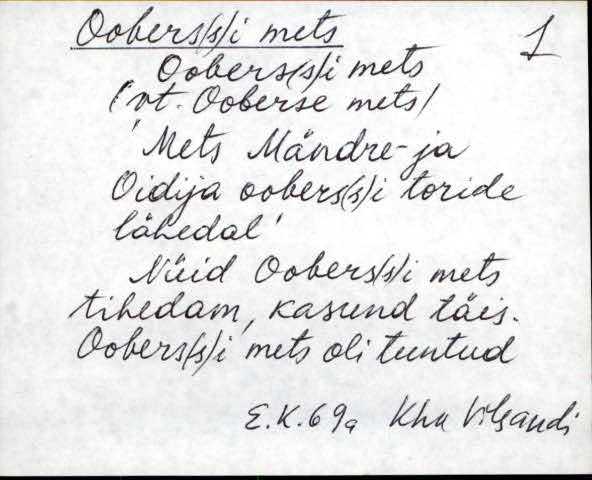 Oobers(s)i mets
1
Oobers(s)i mets
(vt. Ooberse mets)
'Mets Mändre- ja
Oidija oobers(s)i toride
lähedal'
Nüid Oobers(s)i mets
tihedam, kasund täis.
Oobers(s)i mets oli tuntud
E.K. 69a Khn Viljandi